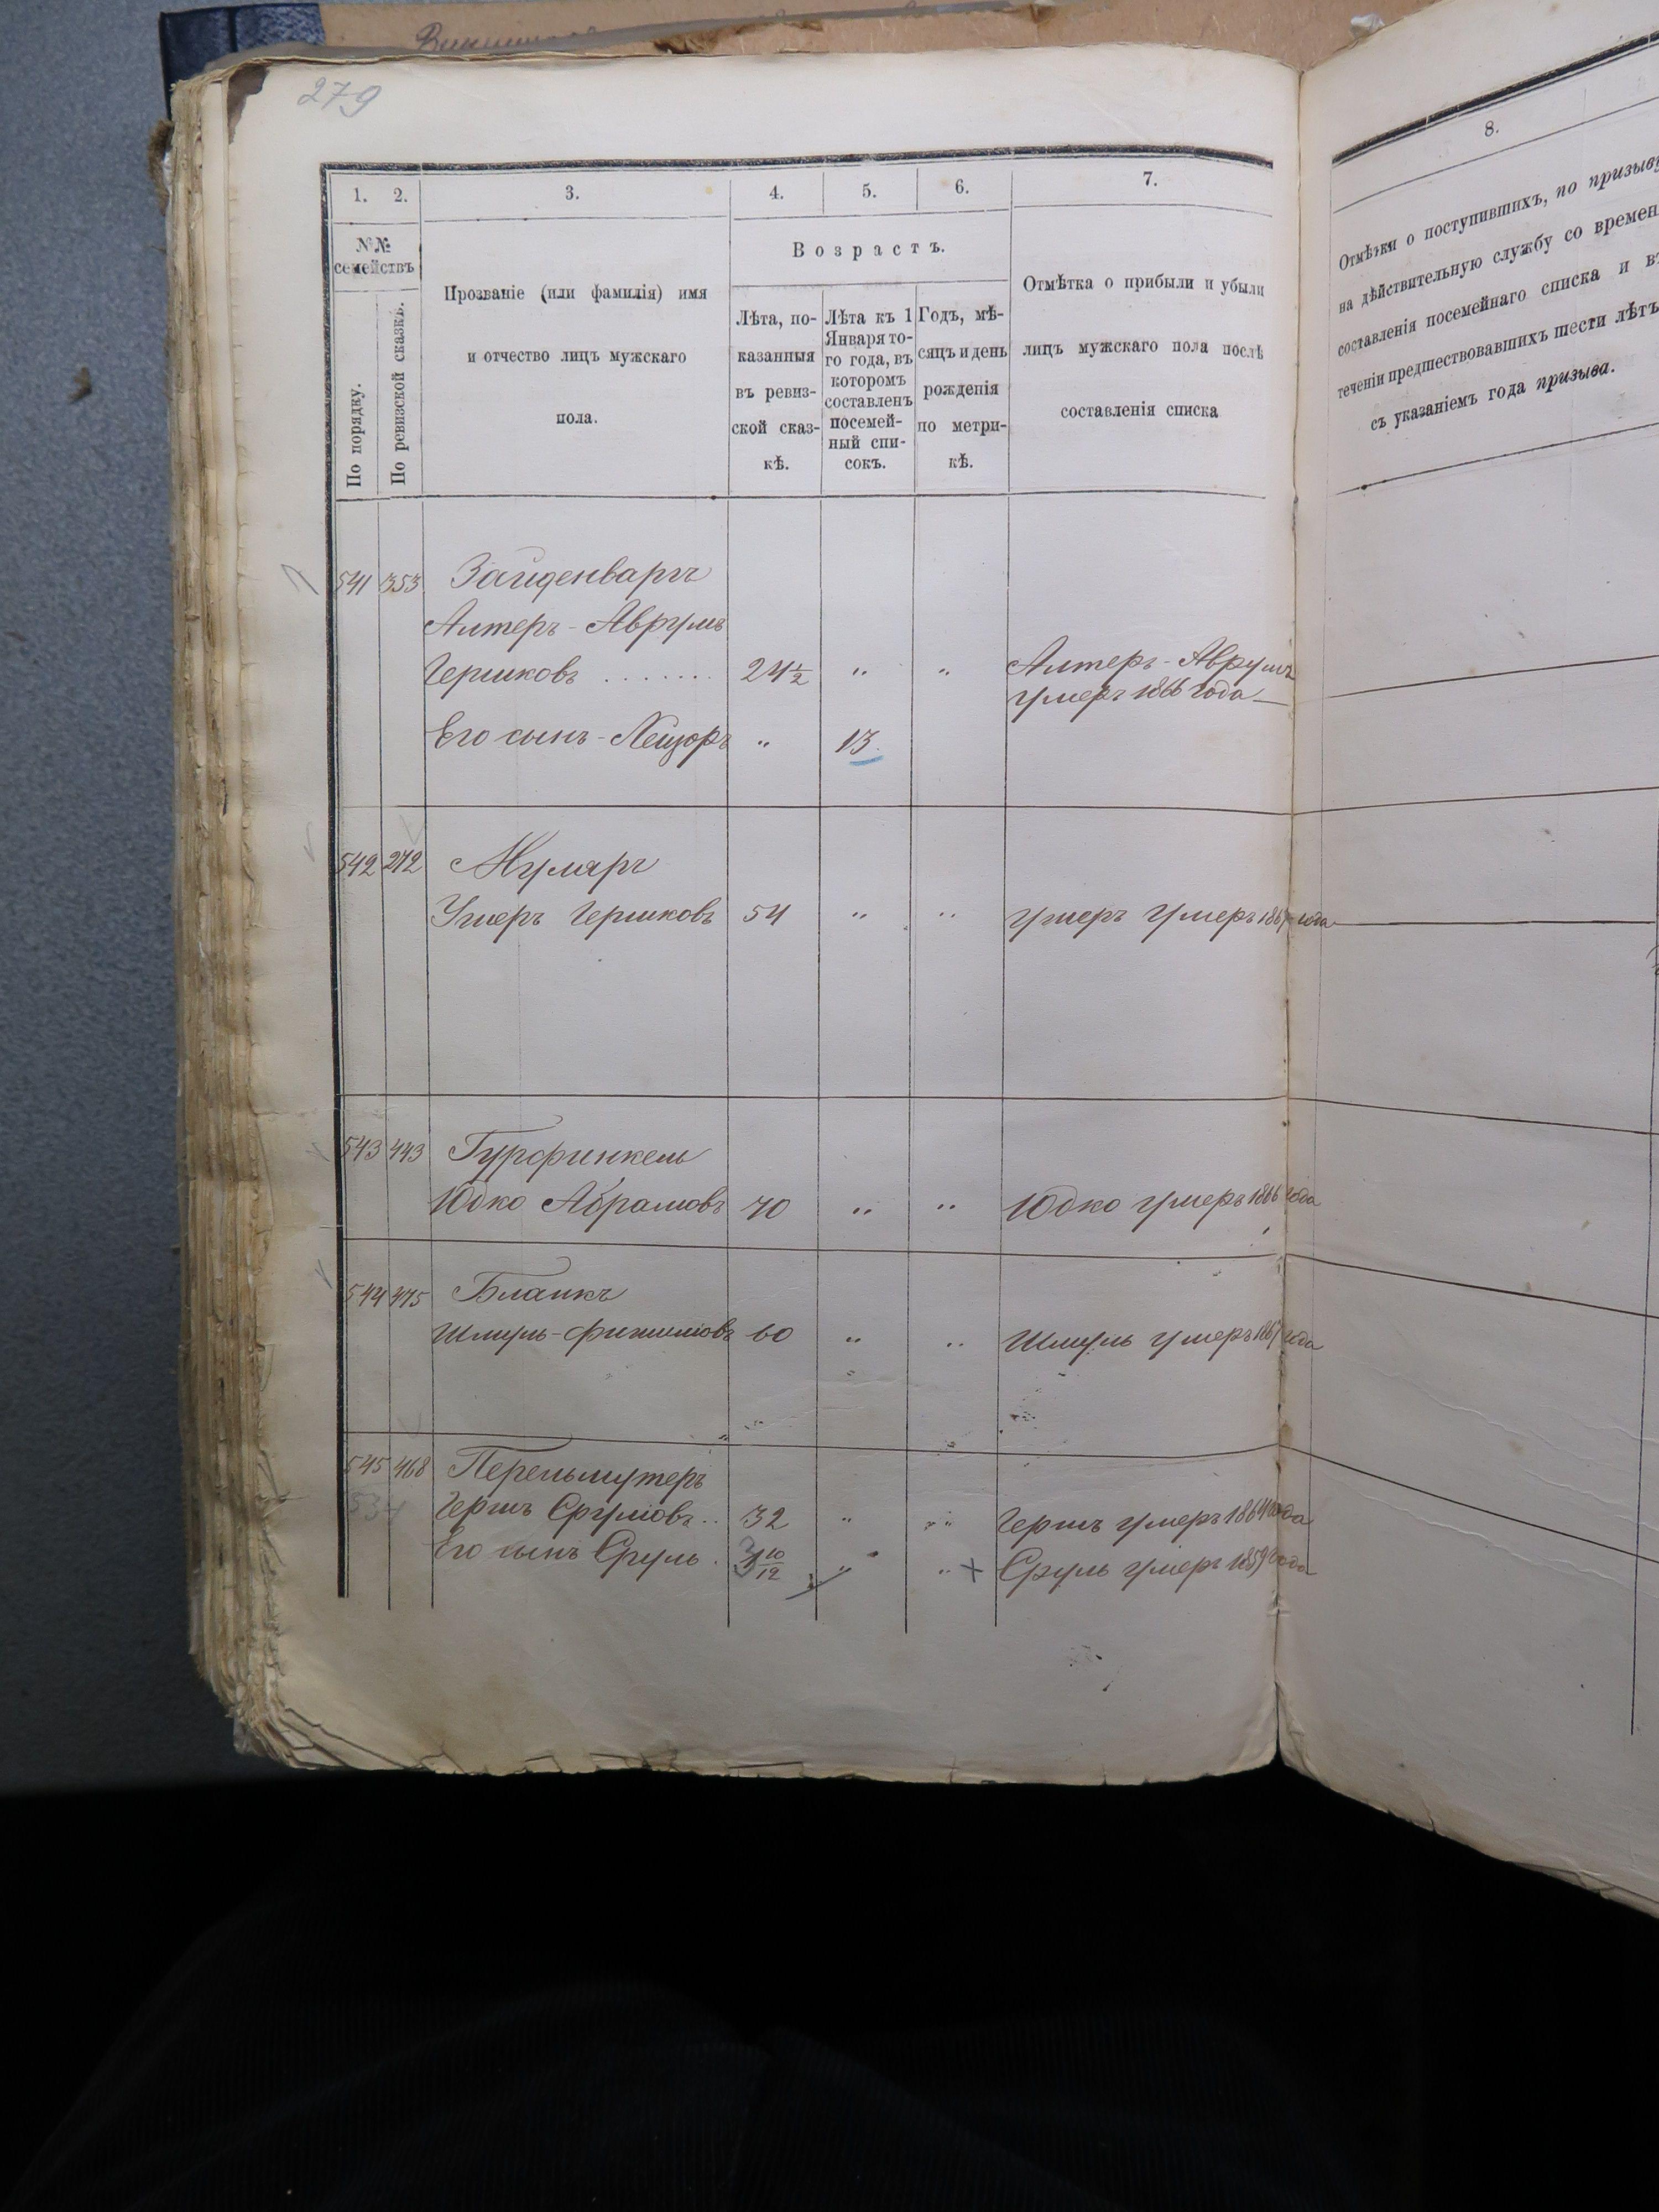 279
1. 2. 3. 4. 5. 6. 7.
№№ семействъ
По порядку.
По ревизской сказкѣ.
Прозваніе (или фамилія) имя
и отчество лицъ мужскаго
пола.
Возрастъ.
Лѣта, по-
казанныя
въ ревиз-
ской сказ-
кѣ.
Лѣта къ 1
Января то-
го года, въ
которомъ
составленъ
посемей-
ный спи-
сокъ.
Годъ, мѣ-
сяцъ и день
рожденія
по метри-
кѣ.
Отмѣтка о прибыли и убыли
лицъ мужскаго пола послѣ
составленія списка
541 353 Зайденваргъ
Алтеръ-Аврумъ
Гершковъ ....... 24½ " " Алтеръ-Аврумъ
умеръ 1866 года
Его сынъ- " 13
542 272 Муляръ
Ушеръ Гершковъ 54 " " Ушеръ умеръ 1867 года
543 443 Гурфинкель
Юдко Абрамовъ 70 " " Юдко умеръ 1866 года
544 475 Бланкъ
Шмуль- 60 " " Шмуль умеръ 1867 года
545 468 Перельмутеръ
534 Гершъ Срулiовъ.. 32 " " Гершъ умеръ 1864 года
Его сынъ Сруль. 3 10/12 " " + Сруль умеръ 1859 года
8.
Отмѣтки о поступившихъ, по призыву
на дѣйствительную службу со времен
составленія посемейнаго списка и въ
теченіи предшествовавшихъ шести лѣтъ
съ указаніемъ года призыва.